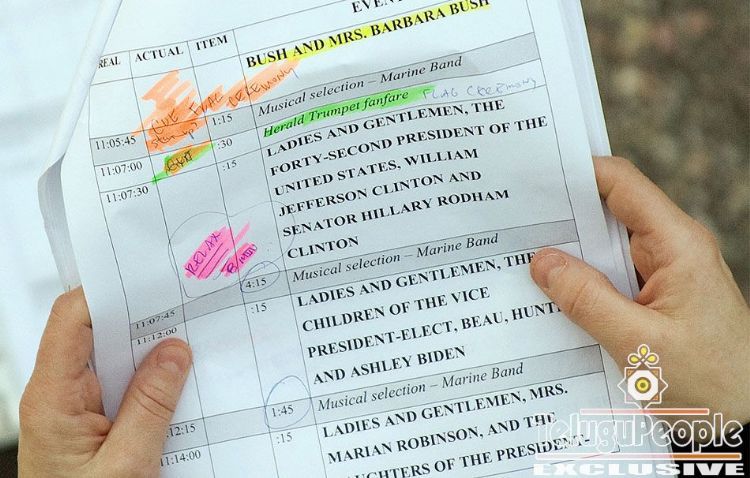 EVEN
REAL ACTUAL ITEM
BUSH AND MRS. BARBARA BUSH
CUE FLAG CEREMONY
Musical selection – Marine Band
11:05:45 1:15
Herald Trumpet fanfare FLAG CEREMONY
11:07:00 :30
LADIES AND GENTLEMEN, THE
11:07:30 :15
FORTY-SECOND PRESIDENT OF THE
UNITED STATES, WILLIAM
JEFFERSON CLINTON AND
SENATOR HILLARY RODHAM
CLINTON
RELAX
Musical selection – Marine Band
11:07:45 4:15
LADIES AND GENTLEMEN, THE
11:12:00 :15
CHILDREN OF THE VICE
PRESIDENT-ELECT, BEAU, HUNTE
AND ASHLEY BIDEN
Musical selection – Marine Band
12:15 1:45
LADIES AND GENTLEMEN, MRS.
11:14:00 :15
MARIAN ROBINSON, AND THE
AUGHTERS OF THE PRESIDENT-
TeluguPeople
EXCLUSIVE